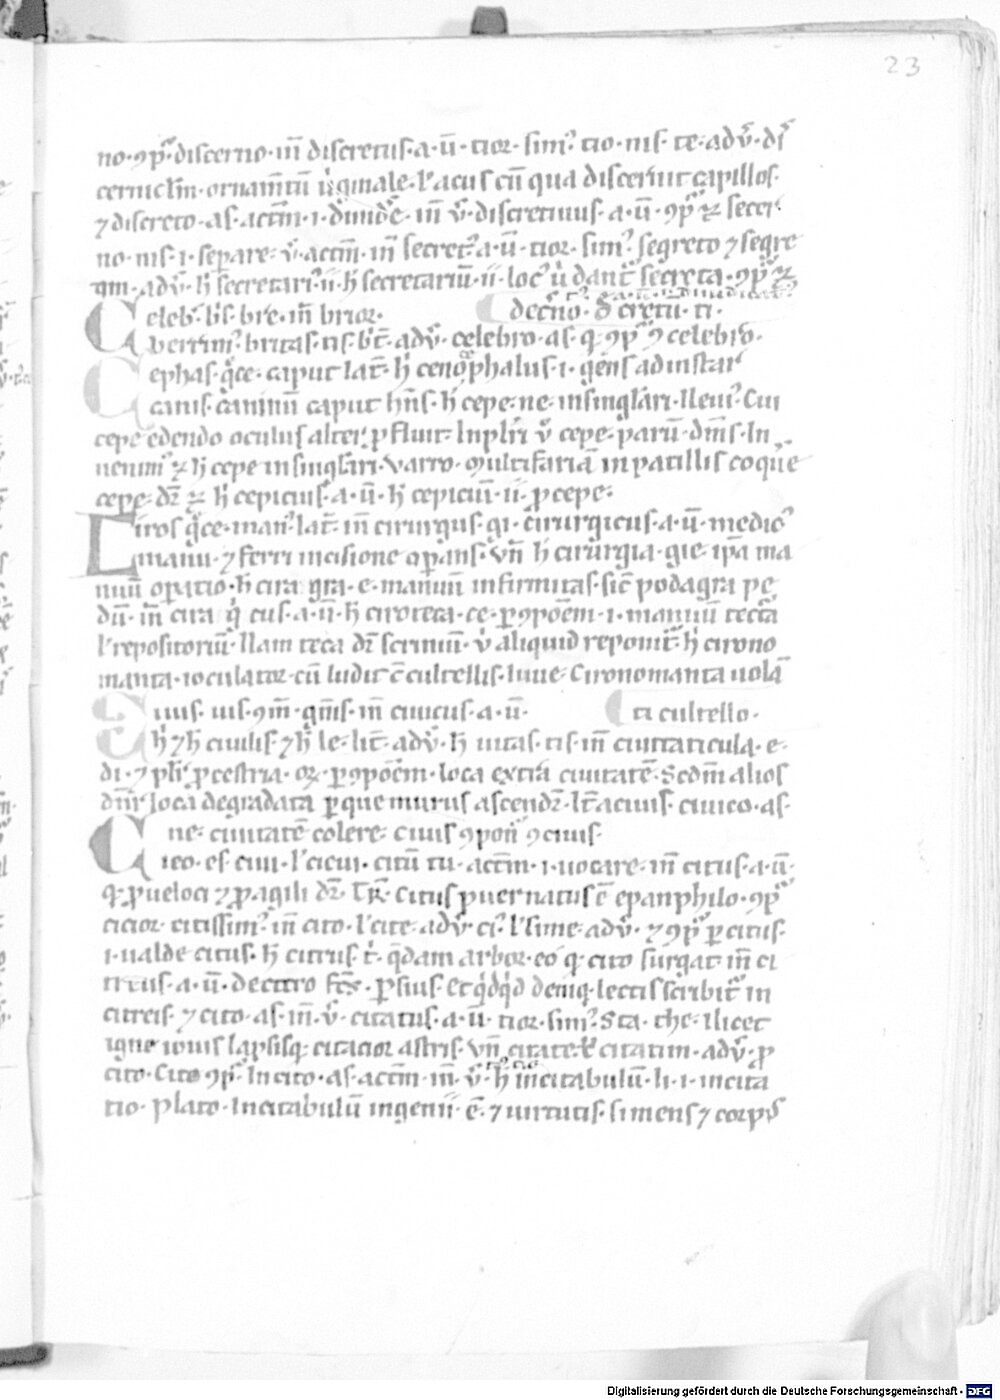 23
no·ꝯp͛·discerno·in̄ discretus·a·ū·tior·sim᷒ tio·nis·te·adv̄·di
cernicl̄m·ornam̄tū v͛ginale·l'acus cū qua discernit capillos·
⁊ discreto·as·act̄m·i·diuide᷒·in̄ v̄·discretiuus·a·ū·ꝯp͛ secer
no·nis·i·separe·v̄·act̄m·in̄ secret᷒ a·ū·tior·sim᷒ segreto ⁊ segre
gm·adv̄·h̄ secretari᷒ ii·h̄ secretariū·ii·loc᷒ u͛ dant᷒ secreta·ꝯp͛
Celeb᷒·b͛is·bre·in̄ brior· decno·decretu·ti·
verrim᷒ britas·tis·b͛t·adv̄·celebro·as·q·ꝯp͛ ꝯcelebro·
Cephas·g͛ce·caput lat̄·h̄ cenophalus·i·gens ad instar
canis·caninū caput hn̄s·h̄ cepe·ne·insingl̄ari·lleui᷒·Cui
cepe edendo oculus alter ꝓfluit·Inpl͛ri v̄ cepe·parū·dm̄s·In
uenim᷒ h̄ cepe insingl̄ari·varro·multifariā in patillis coque
cepe·dr̄ h̄ cepicius·a·ū·h̄ cepiciū·ii·ꝓ cepe·
Ciros g͛ce·man᷒ lat̄·in̄ cirurgus·gi·cirurgicus·a·ū·medic᷒
manu·⁊ ferri incisione opans·vn̄ h̄ cirurgia·gie·ip̄a ma
nuū opatio·h̄ cira gra·e·manuū infirmitas·sic̄ podagra pe
dū·in̄ cira g͛ cus·a·ū·h̄ ciroteca·ce·ꝑ ꝯpōem·i·manuū tecta
l'repositoriū·Nam teca dr̄ scriniū·v͛ aliquid reponit᷒·h̄ cirono
manta·ioculator·cū ludit c̄ cultellis·Iuue·Cironomanta uolā
Ciuis·uis·ꝯm̄·gm̄s·in̄ ciuicus·a·ū· ti cultello·
h̄ ⁊ h̄ ciuilis ⁊ h̄ le·lit̄·adv̄·h̄ uitas·tis·in̄ ciuitaticula·e·
di·⁊ pl͛r ꝓcestria·oꝝ·ꝑ ꝯpōem·loca extra ciuitatē·Scdm̄ alios
loca degradata ꝑ que murus ascendr̄·lt̄ a ciuis·ciuico·as·
ne·ciuitatē colere·ciuis ꝯpon̄ ꝯciuis·
Cieo·es·ciui·l'cicui·citū tu·act̄m·i·uocare·in̄ citus·a·ū·
q·ꝓ ueloci ⁊ ꝓ agili dr̄·Tr̄·Citus puer natus ē epanphilo·ꝯp͛
citior·citissim᷒·in̄ cito·l'cite·adv̄·ci᷒·l'sime·adv̄·⁊ ꝯp͛ ꝑcitus·
i·ualde citus·h̄ citrus·t᷒·q̄dam arbor·eo q·cito surgat·in̄ ci
treus·a·ū·de citro fc̄s·Persius·Et q͛dq͛d deniq·lectis scribit᷒ in
citreis·⁊ cito·as·in̄·v̄·citatus·a·ū·tior·sim᷒·Sta·the·Ilicet
igne iouis lapsisq·citacior astris·vn̄ citate l' citatim·adv̄·ꝓ
cito·Cito ꝯp͛·Incito·as·act̄m·in̄·v̄·h̄ incitabulū·li·i·incita
tio·Plato·Incitabulū ingenii·ē·⁊ uirtutis·si mens ⁊ corp᷒
Digitalisierung gefördert durch die Deutsche Forschungsgemeinschaft - DFG